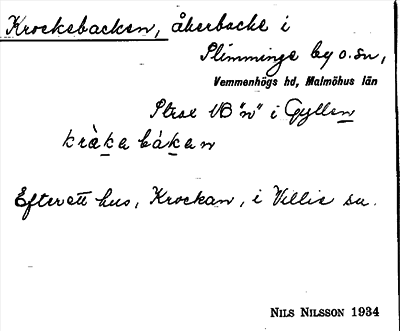 Krockebacken, åkerbacke i
Slimminge by o. sn,
Vemmenhögs hd, Malmöhus län
Strax NB "n" i Gyllen
kràka bákan
Efter ett hus, Krockan, i Villie sn.
NILS NILSSON 1934